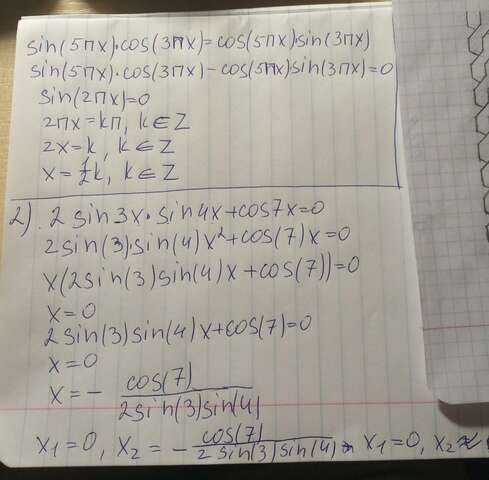 sin(5πx)·cos(3πx)=cos(5πx)·sin(3πx)
sin(5πx)·cos(3πx)-cos(5πx)sin(3πx)=0
sin(2πx)=0
2πx=kπ, k∈Z
2x=k, k∈Z
x=½k, k∈Z
2). 2 sin3x·sin4x+cos7x=0
2sin(3)sin(4)x²+cos(7)x=0
x(2sin(3)sin(4)x+cos(7))=0
x=0
2sin(3)sin(4)x+cos(7)=0
x=0
x=- cos(7)/2sin(3)sin(4)
x₁=0, x₂=-cos(7)/2sin(3)sin(4) x₁=0, x₂≈